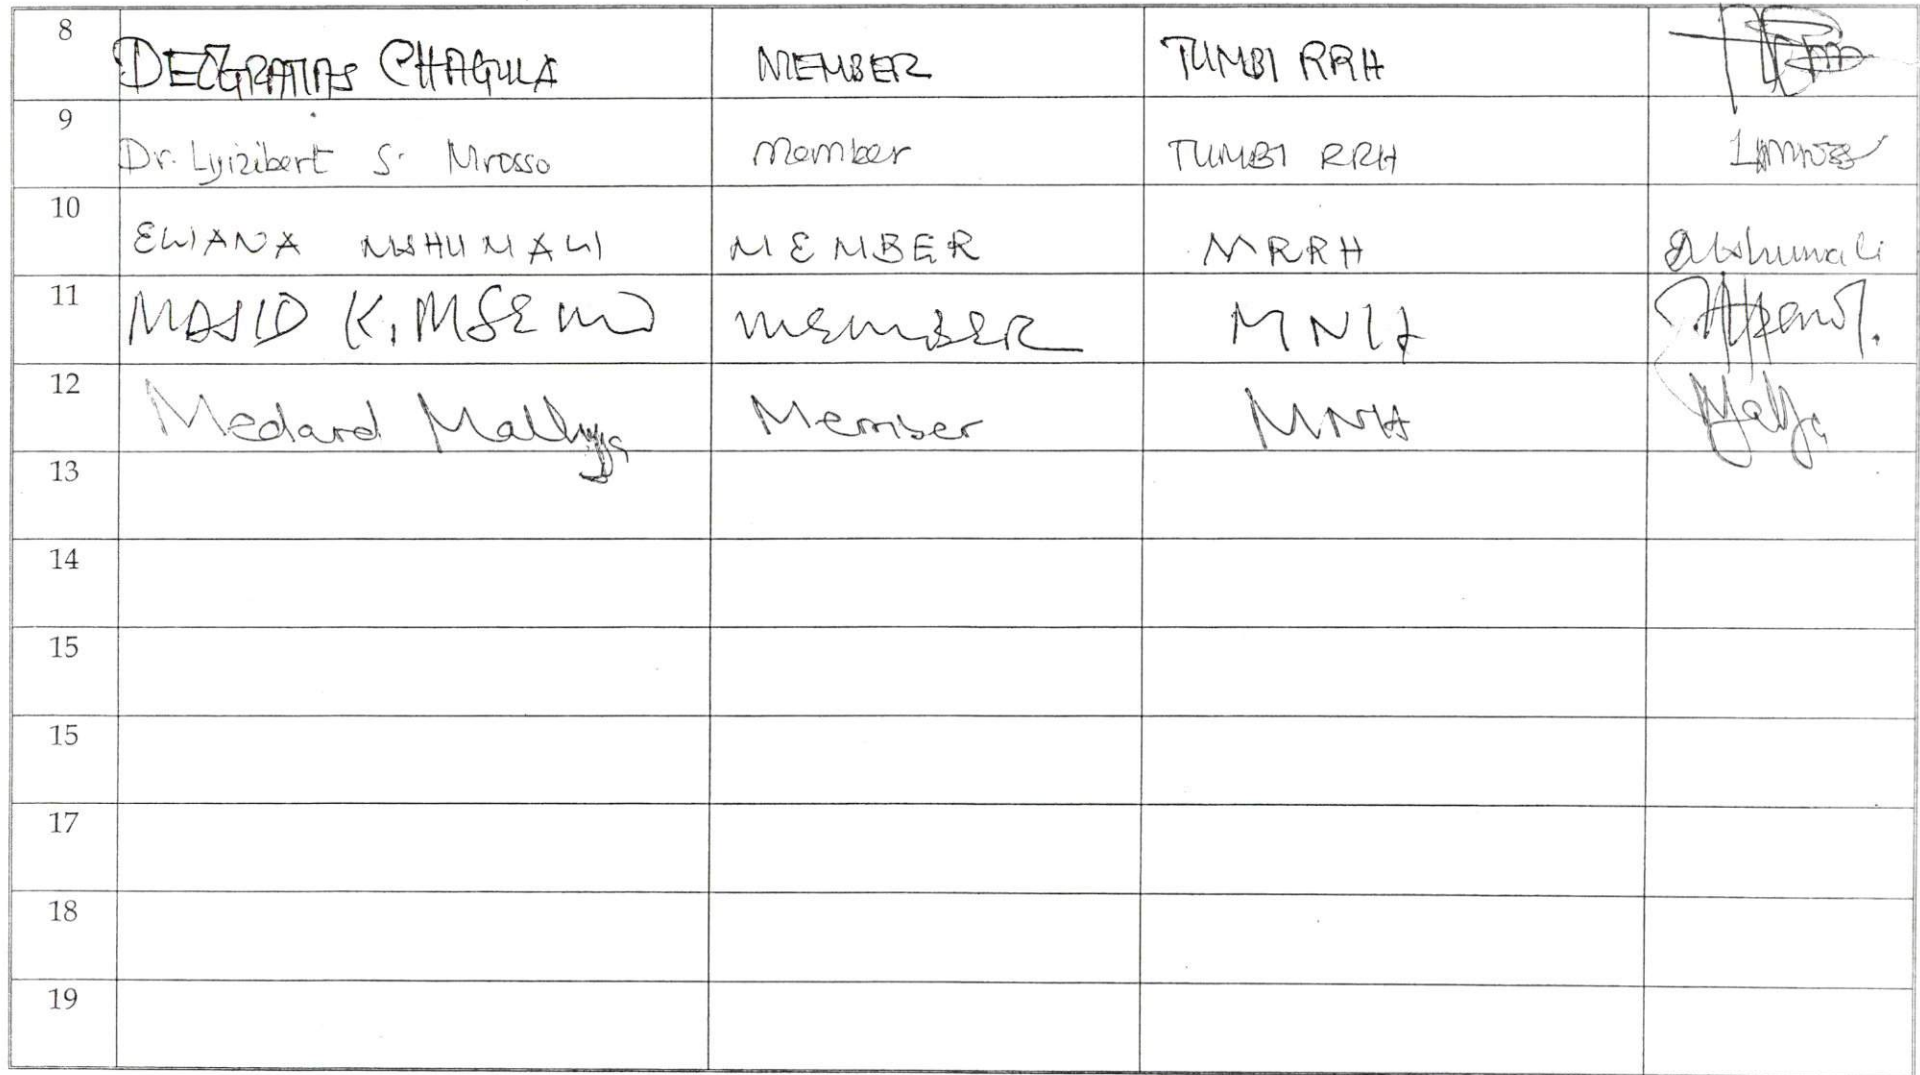 8 DEOGRATIAS CHAGULA MEMBER TUMBI RRH
9 Dr. Lyizibert S. Mrosso Member TUMBI RRH
10 ELIANA MSHUMALI MEMBER MRRH EMshumali
11 MAJID K. MSEMO MEMBER MNH
12 Medard Member MNH
13
14
15
15
17
18
19